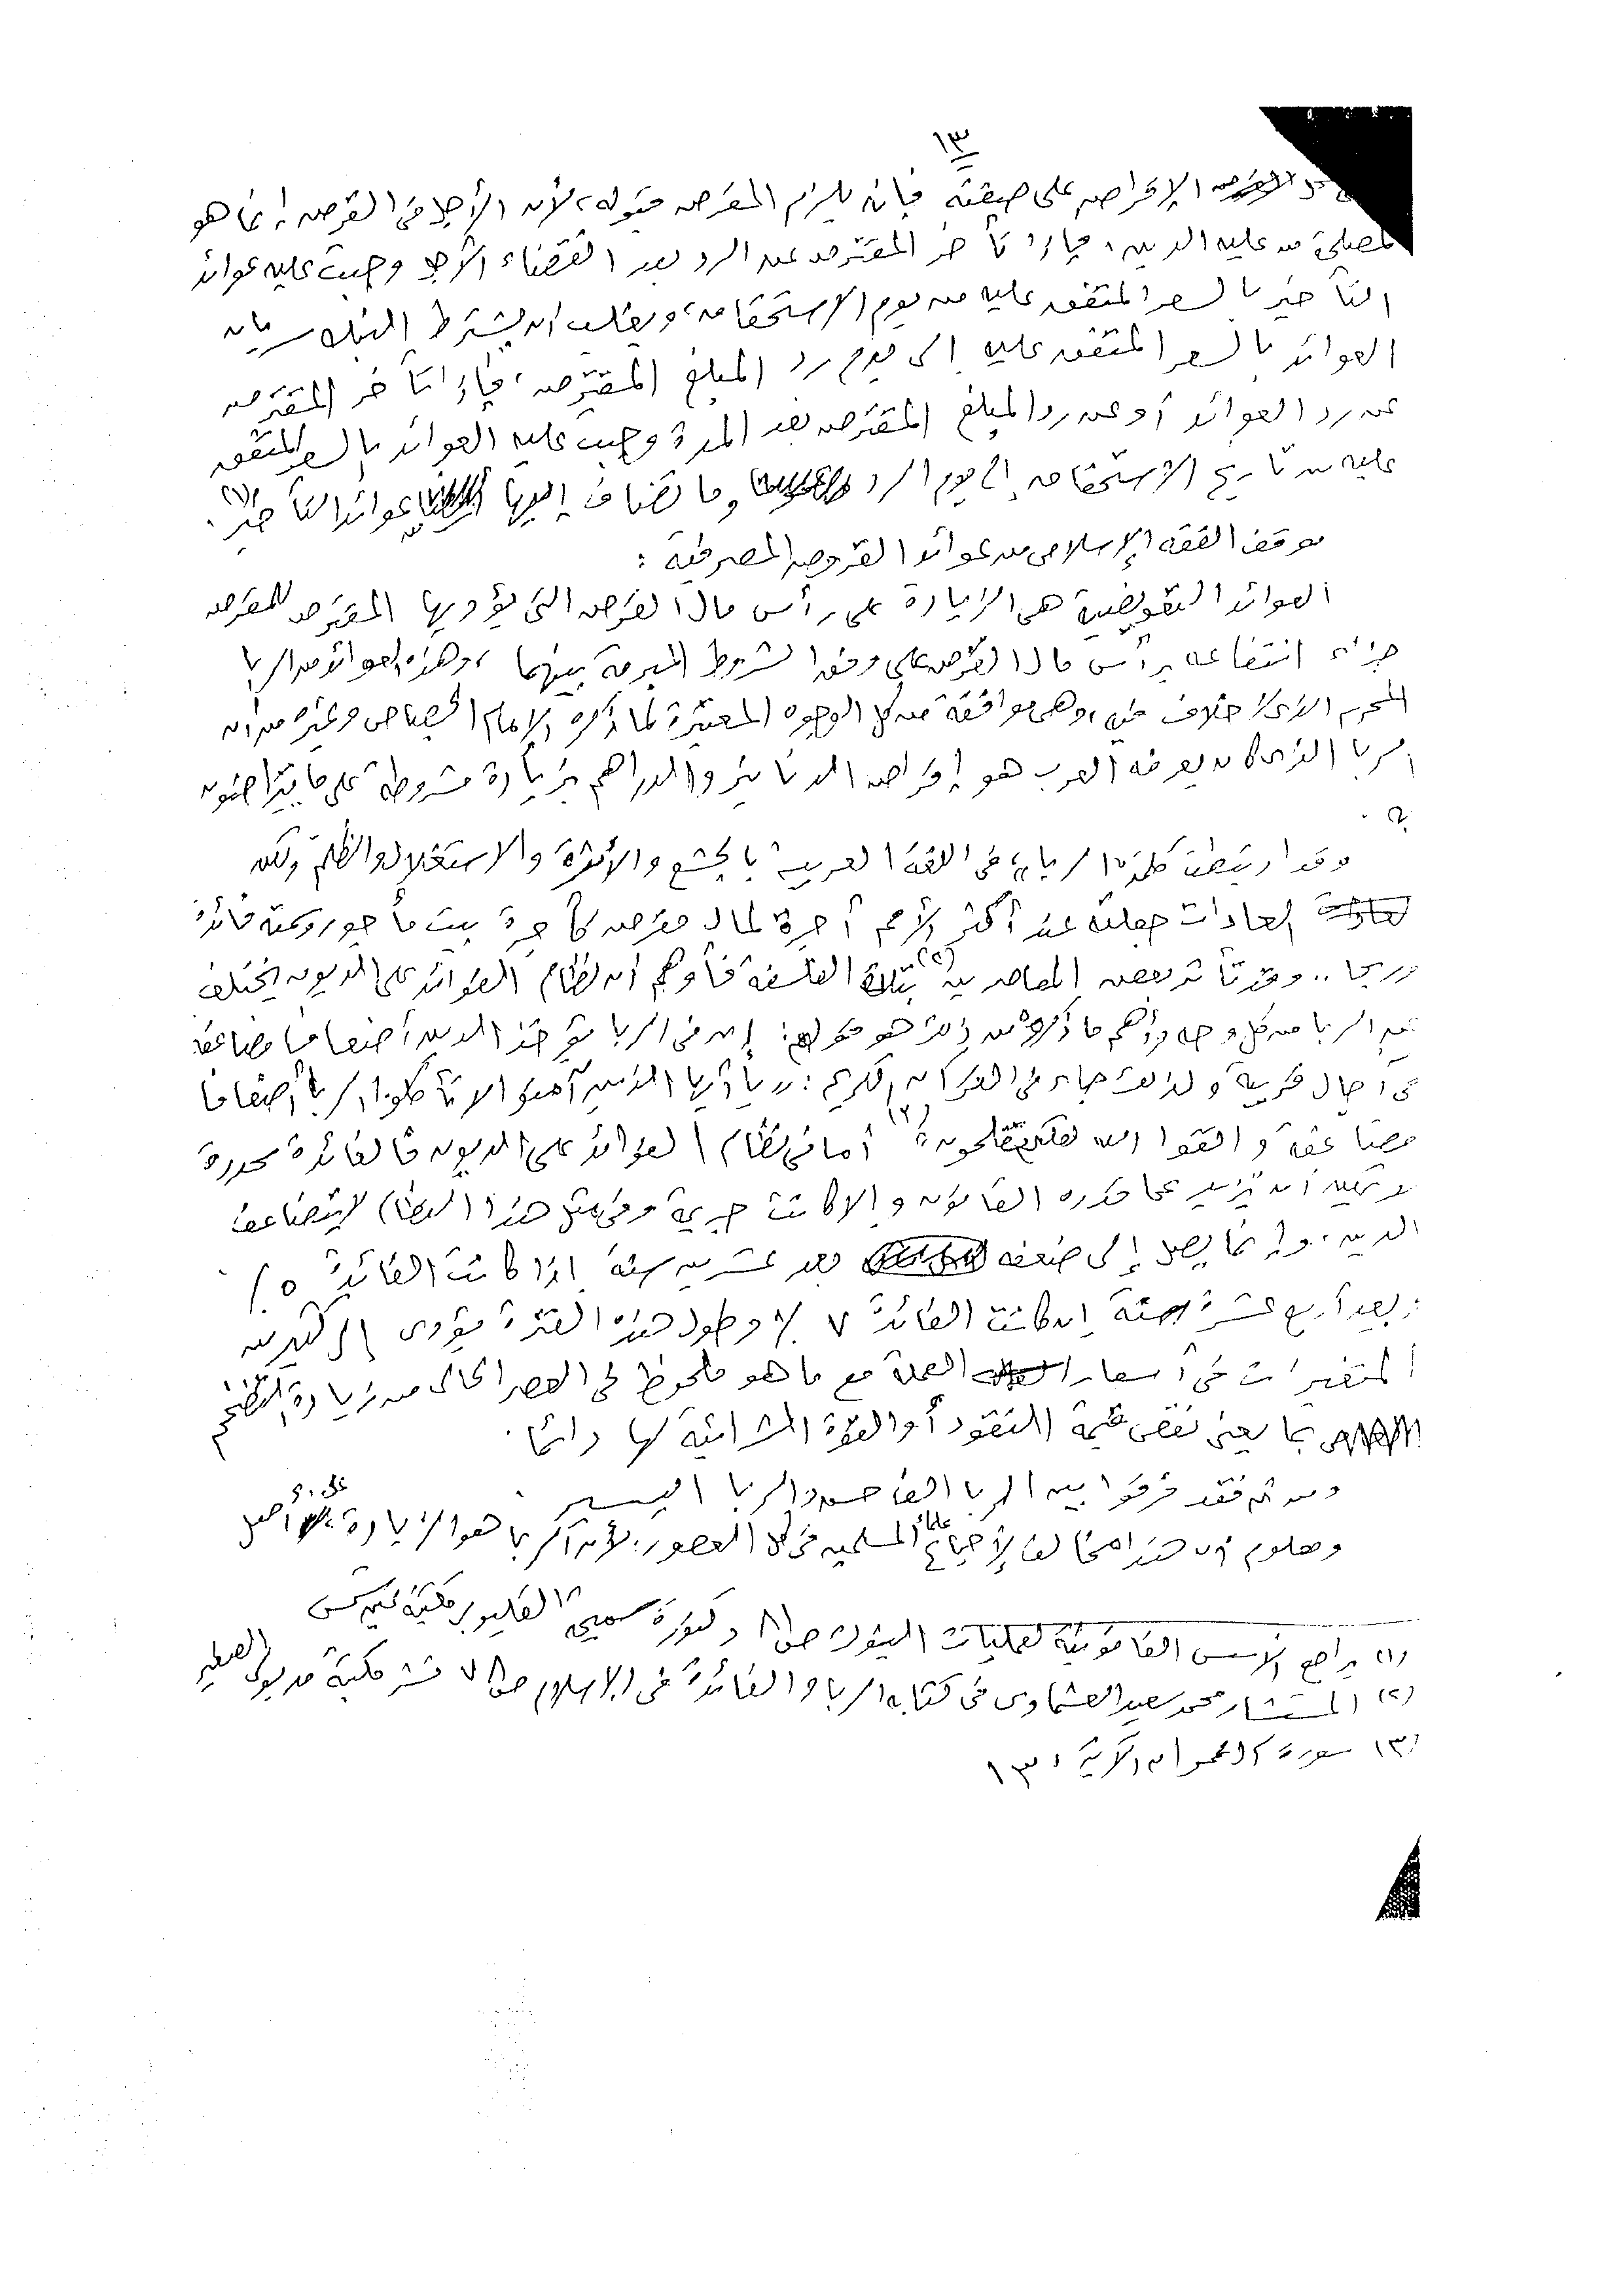 ١٣
الإقراض على صيقته فإنه يلزم المقرض قبوله، لأن الأجل فى القرض إنما هو
لمصلحة من عليه الدين، فإذا تأخر المقترض عن الرد بعد انقضاء الأجل وجبت عليه عوائد
التأخير بالسعر المتفق عليه من يوم الاستحقاق، ويغلب أن يشترط البنك سريان
العوائد بالسعر المتفق عليه إلى يوم رد المبلغ المقترض، فإذا تأخر المقترض
عن رد العوائد أو عن رد المبلغ المقترض بعد المدة وجبت عليه العوائد بالسعر المتفق
عليه من تاريخ الاستحقاق إلى يوم الرد وما تضاف إليها عوائد التأخير (١).
موقف الفقه الإسلامى من عوائد القروض المصرفية :
العوائد التعويضية هى الزيادة على رأس مال القرض التى يؤديها المقترض للمقرض
جزاء انتفاعه برأس مال القرض على وفق الشروط المبرمة بينهما، وهذه العوائد من الربا
المحرم الذى لا خلاف فيه، وهى موافقة من كل الوجوه المعتبرة لما ذكره الإمام الجصاص وغيره من أن
الربا الذى كان يعرفه العرب هو إقراض الدنانير والدراهم بزيادة مشروطة على ما يتراضون
به .
وقد ارتبطت كلمة "الربا" فى اللغة العربية بالجشع والأثرة والاستغلال والظلم ولكن
العادات جعلته عند أكثر الأمم أجرة لمال مقرض كأجرة بيت مأجور وسمته فائدة
وربحا .. وقد تأثر بعض المعاصرين (٢) بتلك الفلسفة فأوهم أن نظام الفوائد على الديون يختلف
عن الربا من كل وجه وأهم ما ذكروه من ذلك هو قولهم: إن فى الربا يؤخذ الدين أضعافا مضاعفة
فى آجال قريبة ولذلك جاء فى القرآن الكريم: "يا أيها الذين آمنوا لا تأكلوا الربا أضعافا
مضاعفة واتقوا الله لعلكم تفلحون" (٣) أما فى نظام الفوائد على الديون فالفائدة محددة
لا يمكن أن تزيد عما قدره القانون وإلا كانت جريمة وفى مثل هذا النظام لا يتضاعف
الدين، وإنما يصل إلى ضعفه بعد عشرين سنة إذا كانت الفائدة ٥٪
وبعد أربع عشرة سنة إن كانت الفائدة ٧٪ وطول هذه الفترة يؤدى إلى كثير من
المتغيرات فى أسعار العملة مع ما هو ملحوظ فى العصر الحالى من زيادة التضخم
بما يعنى نقص قيمة النقود أو القوة الشرائية لها دائما .
ومن ثم فقد فرقوا بين الربا الفاحش والربا اليسير .
ومعلوم أن هذا مخالف لإجماع علماء المسلمين فى كل العصور؛ لأن الربا هو الزيادة على أصل
(١) يراجع الأسس القانونية لعمليات البنوك ص ٨١ دكتورة سميحة القليوبى مكتبة عين شمس
(٢) المستشار محمد سعيد العشماوى فى كتابه الربا والفائدة فى الإسلام نشر مكتبة مدبولى الصغير
(٣) سورة آل عمران الآية ١٣٠